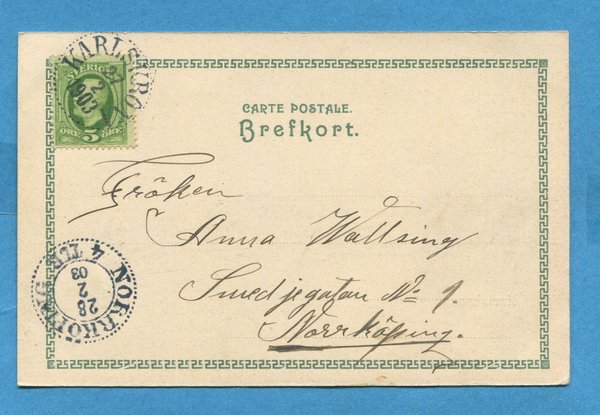 KARLSBORG
27
2
1903
SVERIGE
ÖRE 5 ÖRE
CARTE POSTALE.
Brefkort.
Fröken
Anna Wallsing
Smedjegatan No 9.
Norrköping.
NORRKÖPING
4
28
2
03